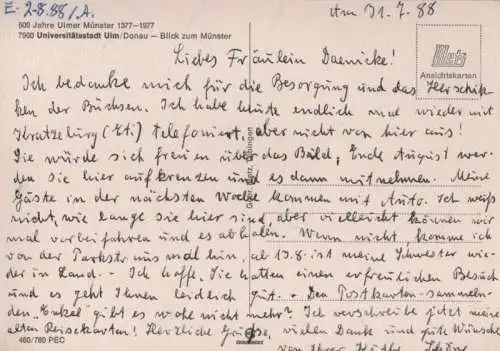 E. 2-8.88/A.
600 Jahre Ulmer Münster 1377-1977
7900 Universitätsstadt Ulm/Donau — Blick zum Münster
31.7.88
Metz
Ansichtskarten
Liebes Fräulein Daenicke!
Ich bedanke mich für die Besorgung und das Herschik-
ken der Büchsen. Ich habe heute endlich mal wieder mit
telefoniert, aber nicht von hier aus!
Sie würde sich freuen über das Bild, Ende August wer-
den sie hier aufkreuzen und es dann mitnehmen. Meine
Gäste in der nächsten Woche kommen mit Auto. Ich weiß
nicht, wie lange sie hier sind, aber vielleicht können wir
mal vorbeifahren und es abholen. Wenn nicht, komme ich
von der Parkstr aus mal hin, ab 13.8. ist meine Schwester wie-
der in Land. - Ich hoffe, Sie hatten einen erfreulichen Besuch
und es geht Ihnen leidlich gut. - Den Postkarten-sammeln-
den „Enkel" gibt es wohl nicht mehr? Ich verschreibe jetzt meine
alten Reisekarten! Herzliche Grüße, vielen Dank und gute Wünsche
von Ihrer
460/780 PEC